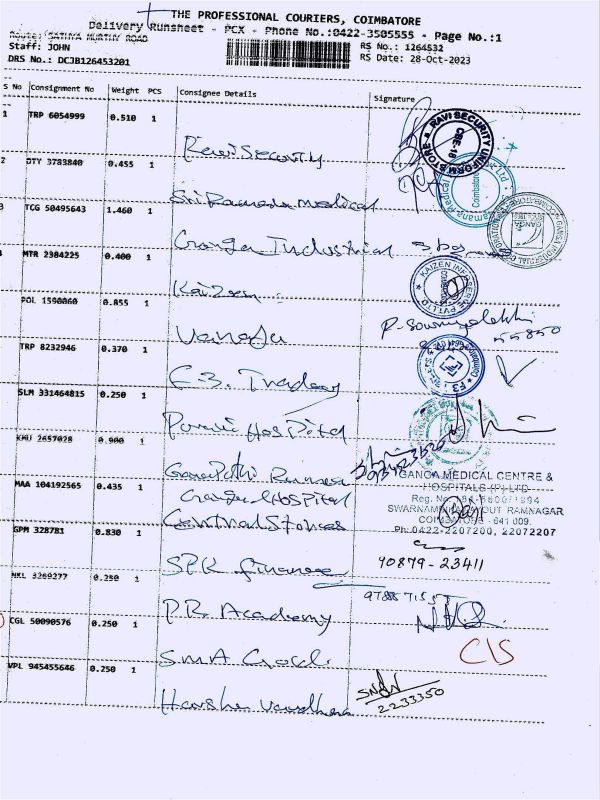 THE PROFESSIONAL COURIERS, COIMBATORE
Delivery Runsheet - PCX - Phone No.:0422-3505555 - Page No.:1
Route: SATHYA MURTHY ROAD
Staff: JOHN
RS No.: 1264532
DRS No.: DCJB126453201
RS Date: 28-Oct-2023
S No Consignment No Weight PCS Consignee Details Signature
1 TRP 6054999 0.510 1
Ravi Security
RAVI SECURITY UNIFORM STORE CBE-18
2 DTY 3783840 0.455 1
Sri Ramana Medical
3 TCG 50495643 1.460 1
Ganga Industrial
MTR 2304225 0.400 1
Kaizen
KAIZEN INFOSERVE PVT LTD
POL 1590060 0.855 1
Vanaja
55850
TRP 8232946 0.370 1
E3. Tradeey
SLM 331464815 0.250 1
Hospital
KMU 2657028 0.900 1
Ganapathi
Ganga Hospital
MAA 104192565 0.435 1
Central Stores
GANGA MEDICAL CENTRE &
HOSPITALS (P) LTD
SWARNAMBIKA LAYOUT RAMNAGAR
COIMBATORE - 641 009.
Ph:0422-2207200, 22072207
GPM 328781 0.830 1
SPK finance
40879-23411
NKL 3269277 0.250 1
P.R. Academy
CGL 50090576 0.250 1
S.M.A Gold
CIS
VPL 945455646 0.250 1
Harsha Vardhana
2233350